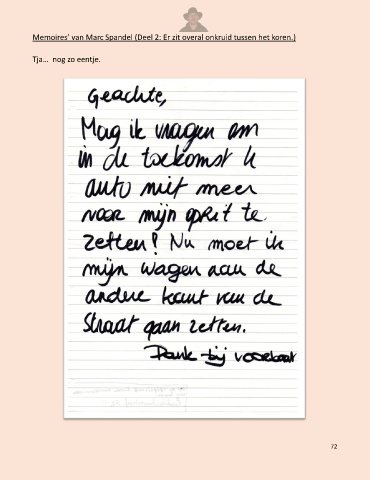 Memoires' van Marc Spandel (Deel 2: Er zit overal onkruid tussen het koren.)
Tja... nog zo eentje.
Geachte,
Mag ik vragen om
in de toekomst U
auto niet meer
voor mijn oprit te
zetten! Nu moet ik
mijn wagen aan de
andere kant van de
straat gaan zetten.
Dank bij voorbaat
72